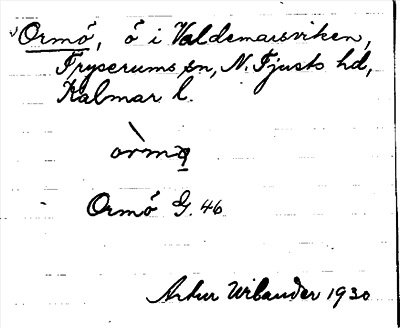 Ormö, ö i Valdemarsviken,
Fryserums sn, N. Tjusts hd,
Kalmar l.
òrmǫ
Ormö G. 46
Artur Wilander 1930